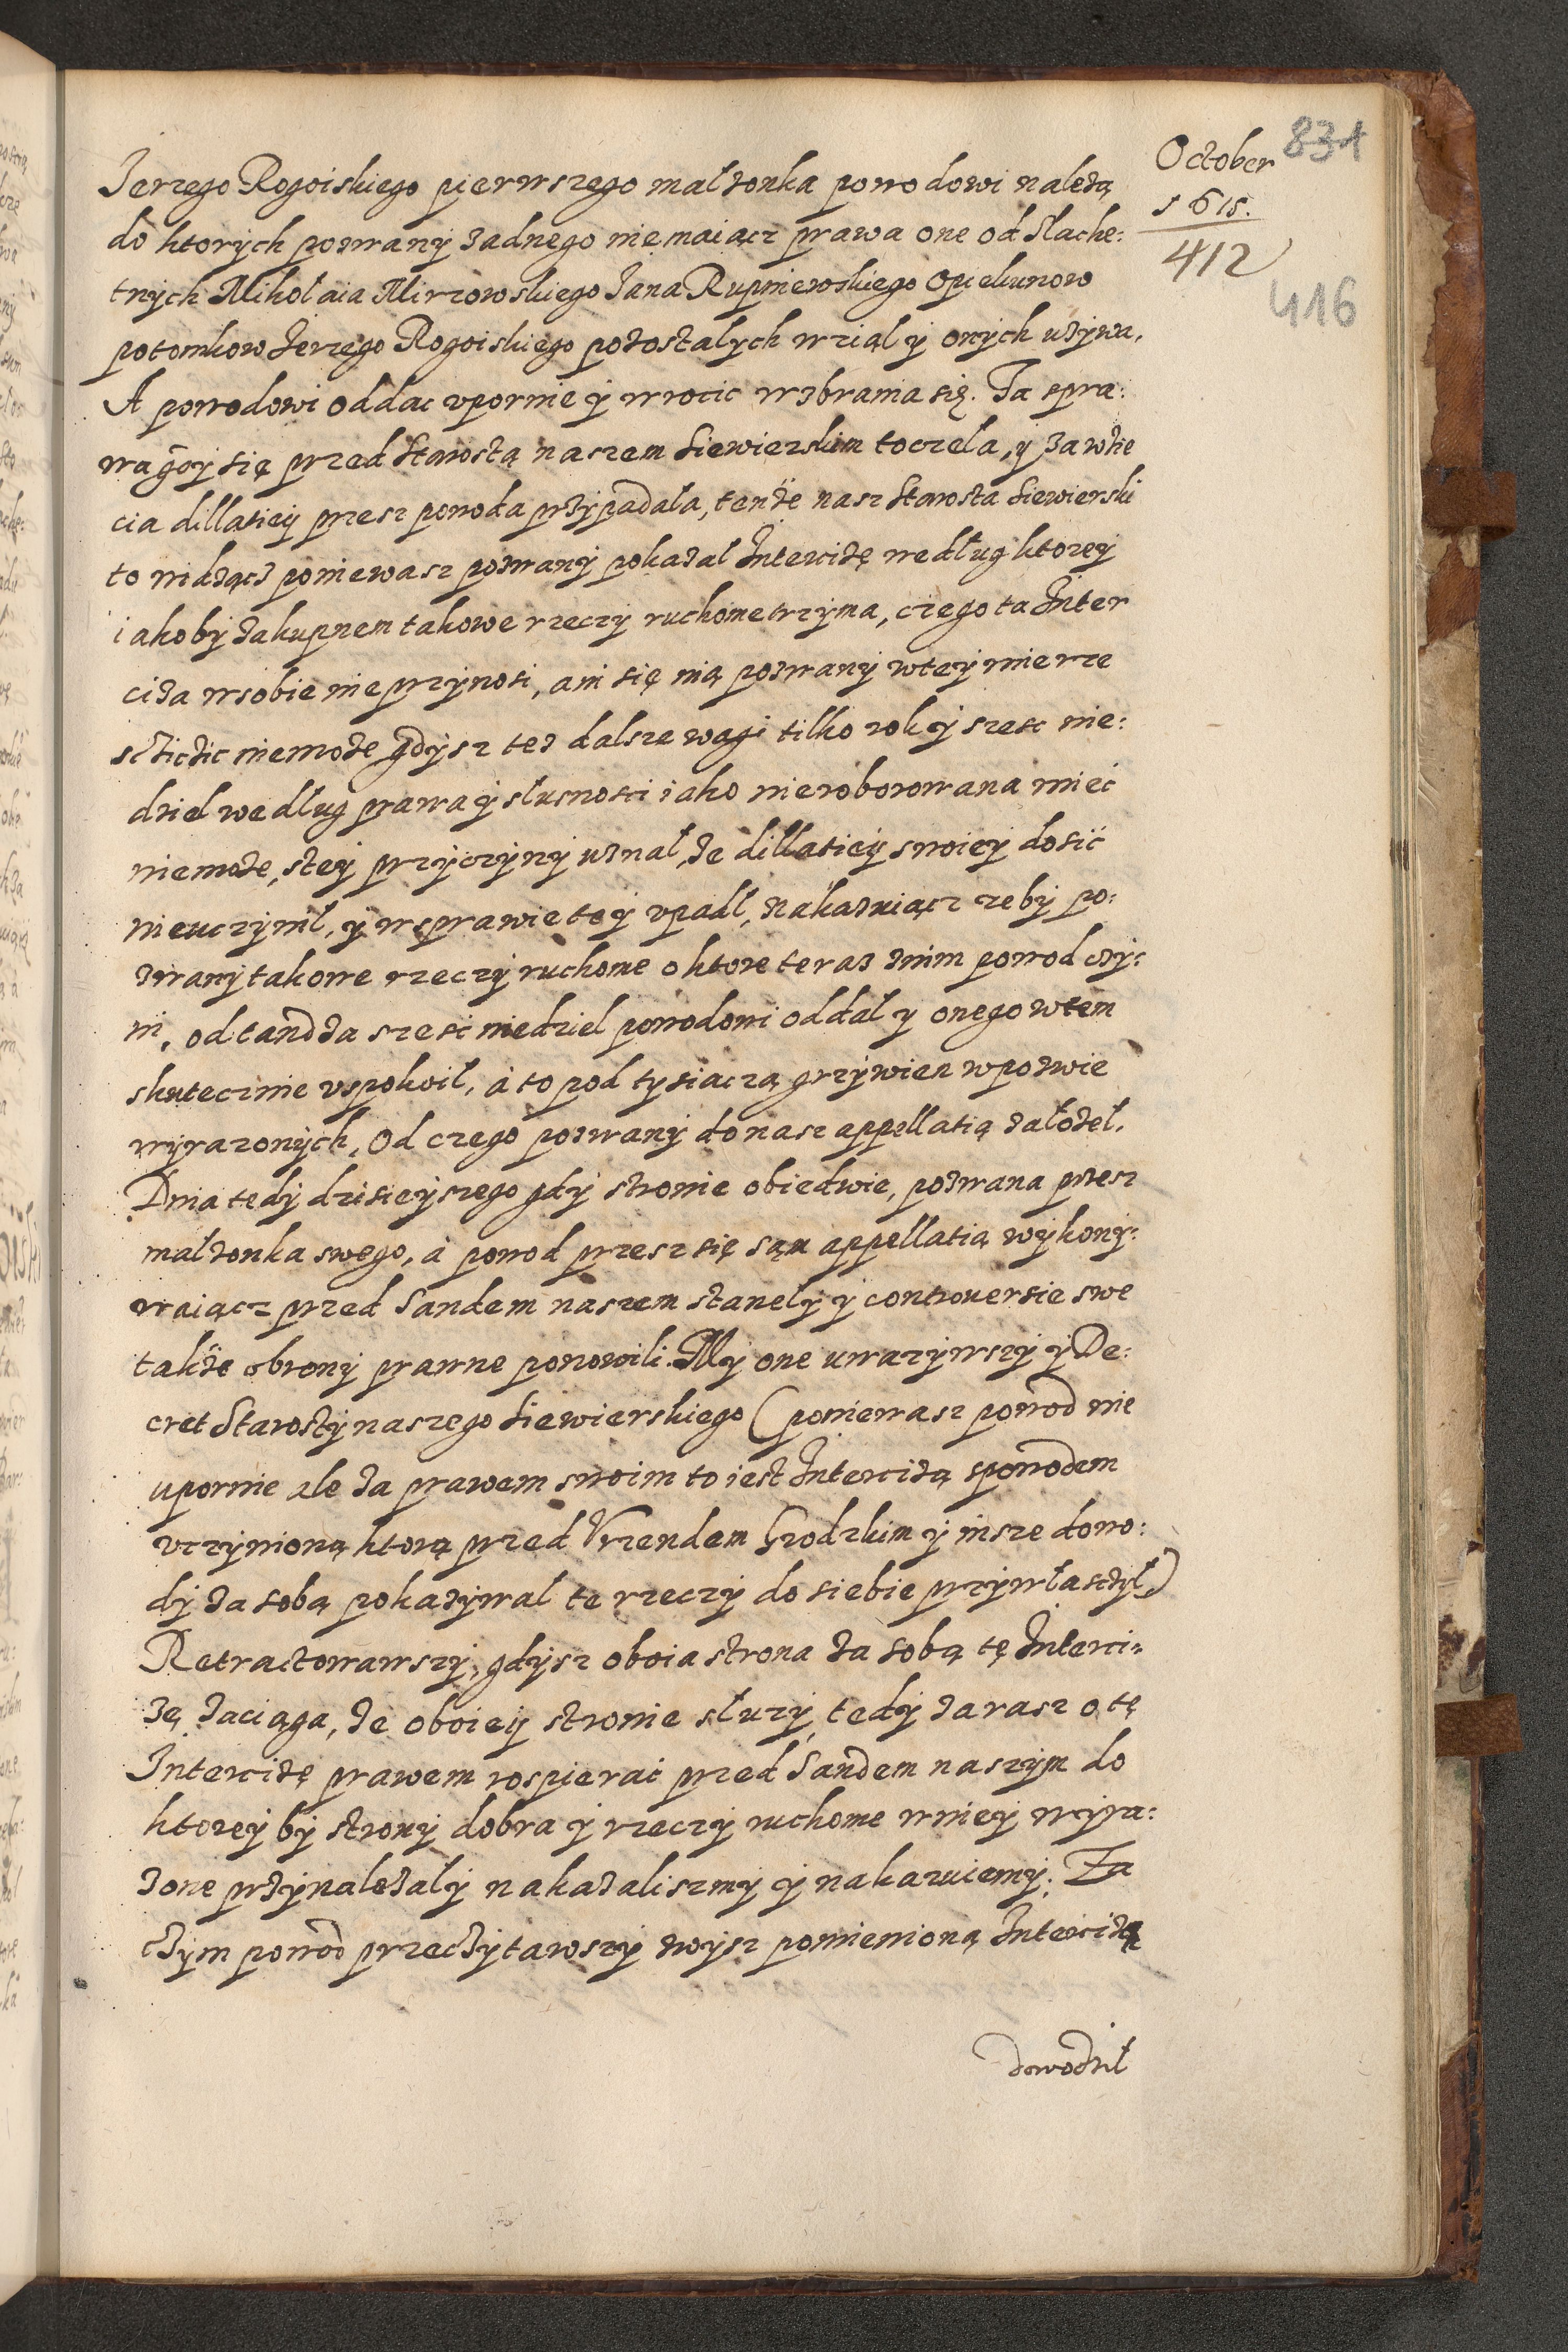 October 831
1615.
412
416
Jerzego Rogoiskiego pierwszego małzonka powodowi nalezą
do ktorych pozwany zadnego niemaiącz prawa one od slache:
tnych Mikolaia Mirzowskiego Jana Rupniewskiego Opiekunow
potomkow Jerzego Rogoiskiego pozostalych wziąl y onych uzywa,
A powodowi oddac vpornie y wrocic wzbrania się. Ta spra:
wa gdy się przed Starostą naszem Siewierskim toczela, y za wzie
cia dillatiey przesz powoda przypadała, tenze nasz Starosta Siewierski
to widzącz poniewasz pozwany pokazal Intercizę według ktorey
iakoby zakupnem takowe rzeczy ruchome trzyma, czego ta Inter
ciza wsobie nie przynosi, ani się nią pozwany wtey mierze
niemoze gdysz tez dalsze wagi tilko rok y szesc nie:
dziel według prawa y slusnosci iako nieroborowana miec
niemoze, stey przyczyny uznal, ze dillatiey swoiey dosic
nieuczynil, y wsprawie tey vpadl, nakazuiącz zeby po:
zwany takowe rzeczy ruchome o ktore teraz znim powod czy:
ni, odtand za szesc niedziel powodowi oddal y onego wtem
skutecznie vspokoil, a to pod tysiaczą grzywien wpozwie
wyrazonych, Od czego pozwany do nasz appellatią załozeł.
Dnia tedy dzisieyszego gdy stronie obiedwie, pozwana przesz
małzonka swego, a powod przesz się sąm appellatią wykony:
waiącz przed Sandem naszem stanely y controuersie swe
takze obrony prawne ponowili. My one uwazywszy y De:
cret Starosty naszego Siewierskiego (poniewasz powod nie
upornie ale za prawem swoim to iest Intercizą spowodem
vczynioną ktorą przed Vrzendem Grodzkim y insze dowo:
dy za sobą pokazywal te rzeczy do siebie przywłaszczył)
Retractowawszy, gdysz oboia strona za sobą tę Interci:
zę zaciąga, ze oboiey stronie sluzy, tedy zarasz o tę
Intercizę prawem rospierac przed Sandem naszym do
ktorey by strony dobra y rzeczy ruchome wniey wyra:
zone przynalezaly nakazaliszmy y nakazuiemy. Za
czym powod przeczytawszy zwysz pomienioną Intercizę
dowodził